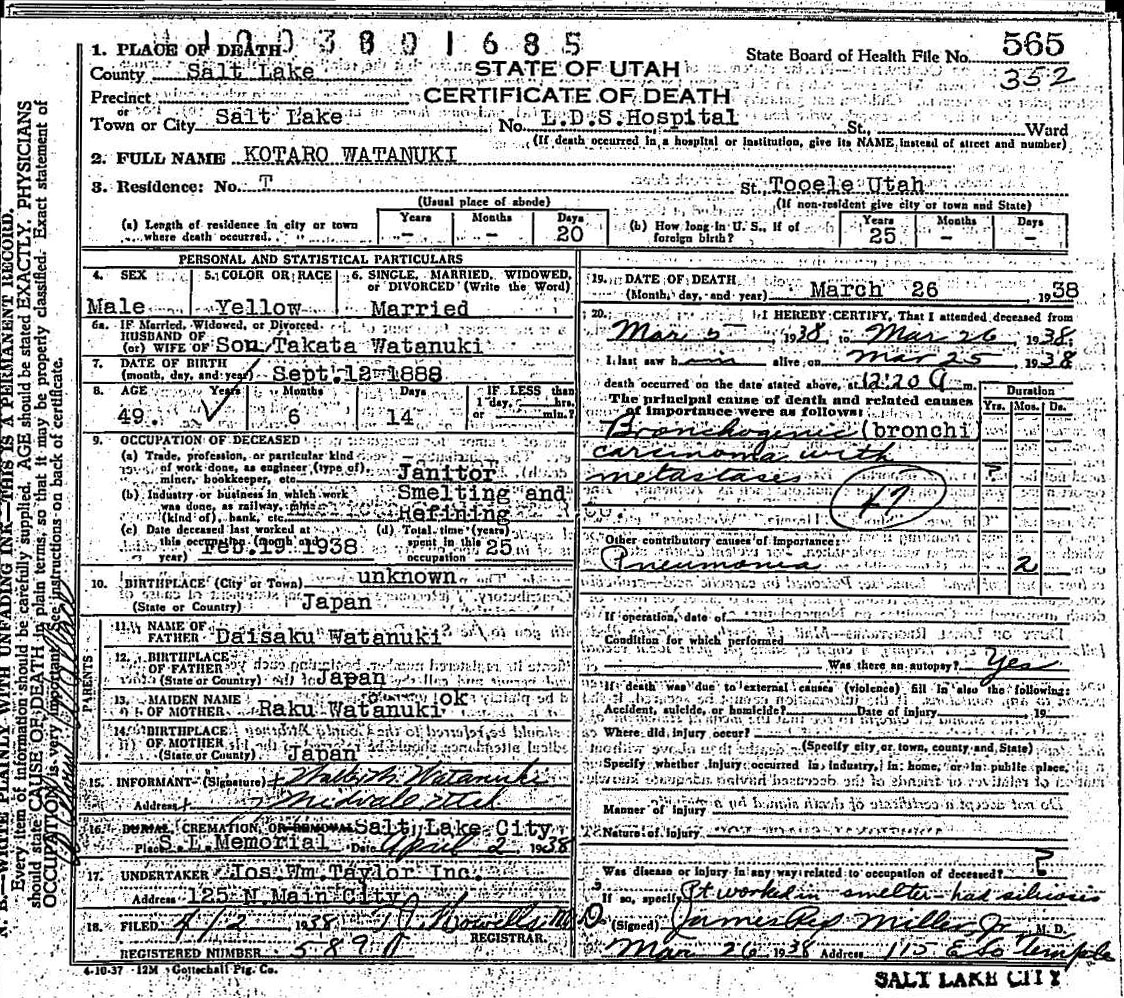 11003801685
1. PLACE OF DEATH
State Board of Health File No. 565
County Salt Lake
STATE OF UTAH
352
Precinct
CERTIFICATE OF DEATH
or
Town or City Salt Lake No. L.D.S.Hospital St., Ward
(If death occurred in a hospital or institution, give its NAME instead of street and number)
2. FULL NAME KOTARO WATANUKI
3. Residence: No. T St. Tooele Utah
(Usual place of abode) (If non-resident give city or town and State)
(a) Length of residence in city or town where death occurred. Years - Months - Days 20
(b) How long in U. S., if of foreign birth? Years 25 Months - Days -
PERSONAL AND STATISTICAL PARTICULARS
4. SEX Male
5. COLOR OR RACE Yellow
6. SINGLE, MARRIED, WIDOWED, or DIVORCED (Write the Word) Married
6a. IF Married, Widowed, or Divorced
HUSBAND OF
(or) WIFE OF Son Takata Watanuki
7. DATE OF BIRTH
(month, day, and year) Sept. 12-1888
8. AGE Years Months Days IF LESS than
49. 6 14 1 day, hrs.
or min.?
9. OCCUPATION OF DECEASED
(a) Trade, profession, or particular kind
of work done, as engineer (type of),
miner, bookkeeper, etc. Janitor
(b) Industry or business in which work
was done, as railway, mine
(kind of), bank, etc. Smelting and Refining
(c) Date deceased last worked at
this occupation (month and
year) Feb.19 1938
(d) Total time (years)
spent in this
occupation 25
10. BIRTHPLACE (City or Town) unknown
(State or Country) Japan
PARENTS
11. NAME OF
FATHER Daisaku Watanuki
12. BIRTHPLACE
OF FATHER
(State or Country) Japan
13. MAIDEN NAME
OF MOTHER Raku Watanuki ok
14. BIRTHPLACE
OF MOTHER
(State or Country) Japan
15. INFORMANT (Signature) Watanuki
Address Midvale Utah
16. BURIAL, CREMATION, OR REMOVAL Salt Lake City
Place S.L.Memorial Date April 2 1938
17. UNDERTAKER Jos.Wm.Taylor Inc.
Address 125 N.Main City
18. FILED 4/2 1938 Howells M.D.
REGISTRAR.
REGISTERED NUMBER
4-10-37 12M Gottschall Ptg. Co.
19. DATE OF DEATH
(Month, day, and year) March 26 1938
20. I HEREBY CERTIFY, That I attended deceased from
Mar 5 1938, to Mar 26 1938.
I last saw him alive on Mar 25 1938
death occurred on the date stated above, at 12:20 A m.
The principal cause of death and related causes
of importance were as follows:
Duration
Yrs. Mos. Ds.
Bronchogenic (bronchi
carcinoma with
metastases ?
47
Other contributory causes of importance:
Pneumonia 2
If operation, date of
Condition for which performed
Was there an autopsy? Yes
If death was due to external causes (violence) fill in also the following:
Accident, suicide, or homicide? Date of injury 19
Where did injury occur?
(Specify city or town, county and State)
Specify whether injury occurred in industry, in home, or in public place,
Manner of injury
Nature of injury
Was disease or injury in any way related to occupation of deceased? ?
If so, specify Pt worked in smelter - had silicosis
(Signed) Miller Jr M. D.
Mar 26 1938 Address 115 E So Temple
SALT LAKE CITY
N. B.—WRITE PLAINLY WITH UNFADING INK—THIS IS A PERMANENT RECORD.
Every item of information should be carefully supplied. AGE should be stated EXACTLY. PHYSICIANS
should state CAUSE OF DEATH in plain terms, so that it may be properly classified. Exact statement of
OCCUPATION is very important. See instructions on back of certificate.